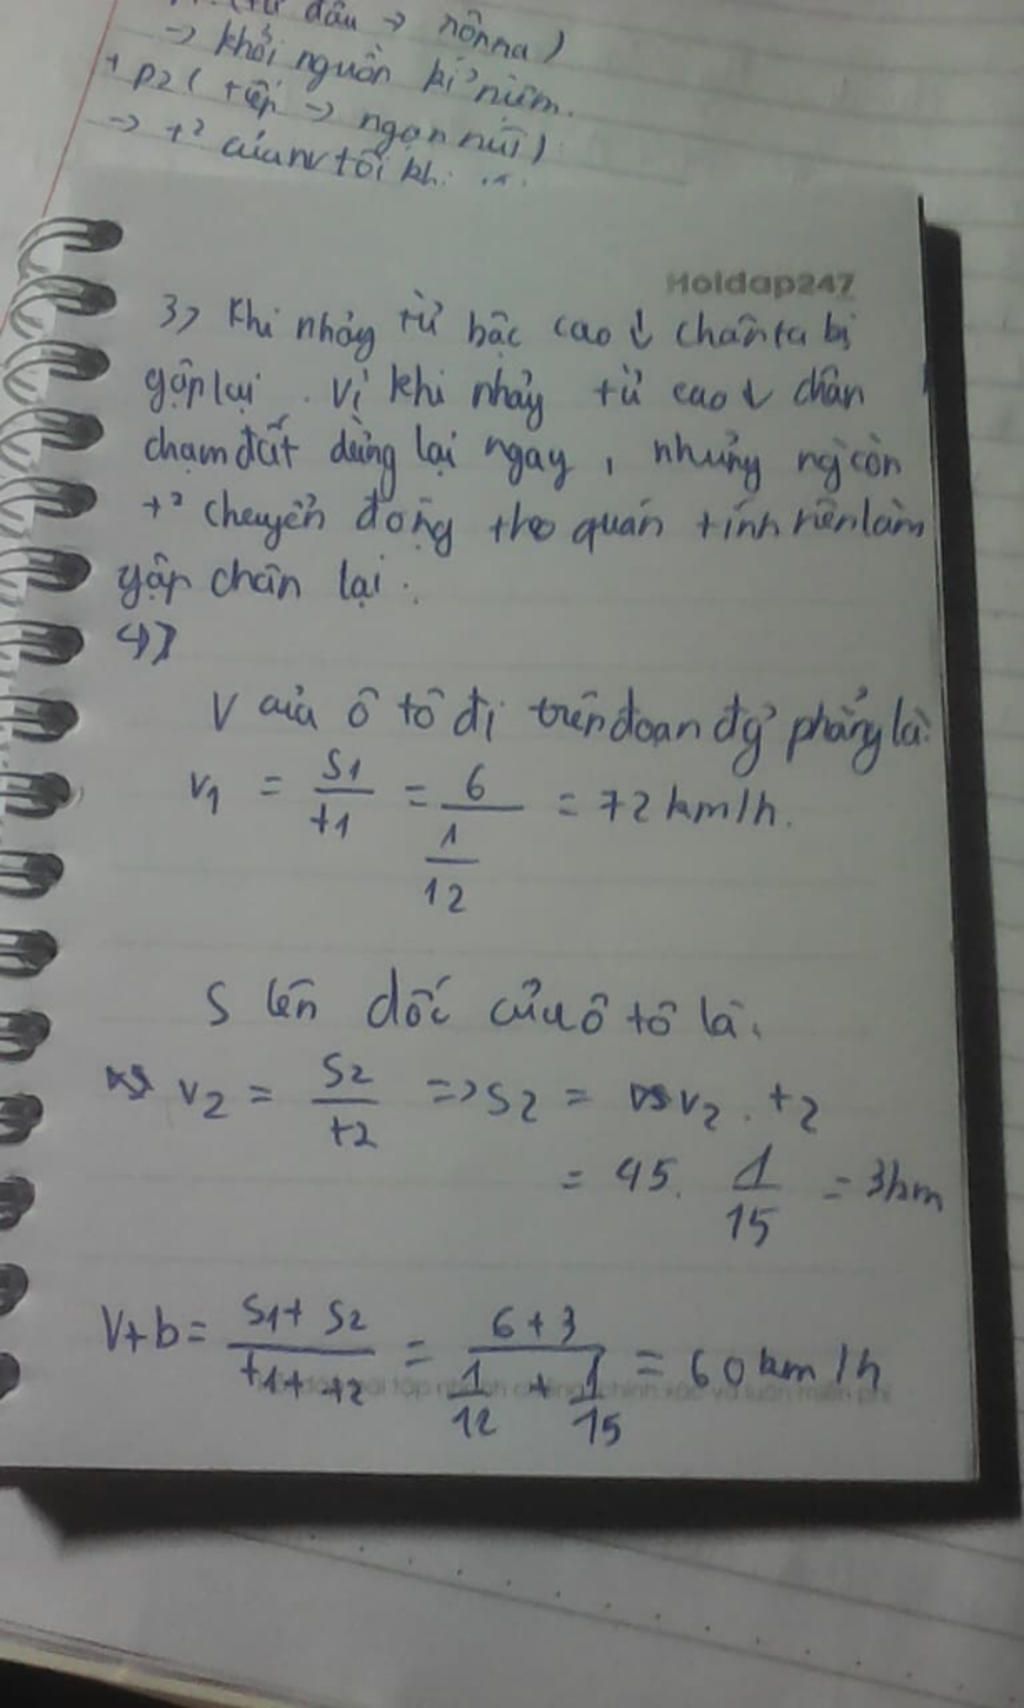 (từ đầu → nônna)
→ khởi nguồn kỉ niệm.
+ P2 ( tiếp → ngọn núi)
→ t² của nv tôi kh. ...
Hoidap247
3> Khi nhảy từ bậc cao ↓ chân ta bị
gập lại . Vì khi nhảy từ cao ↓ chân
chạm đất dừng lại ngay , nhưng ng` còn
t² chuyển động theo quán tính nên làm
gập chân lại .
4>
V của ô tô đi trên đoạn đg` phẳng là:
v1 = s1/t1 = 6/(1/12) = 72 km/h.
S lên dốc của ô tô là.
v2 = s2/t2 => s2 = v2 . t2
= 45. 1/15 = 3km
Vtb = (s1+ s2)/(t1+ t2) = (6+3)/(1/12 + 1/15) = 60 km/h